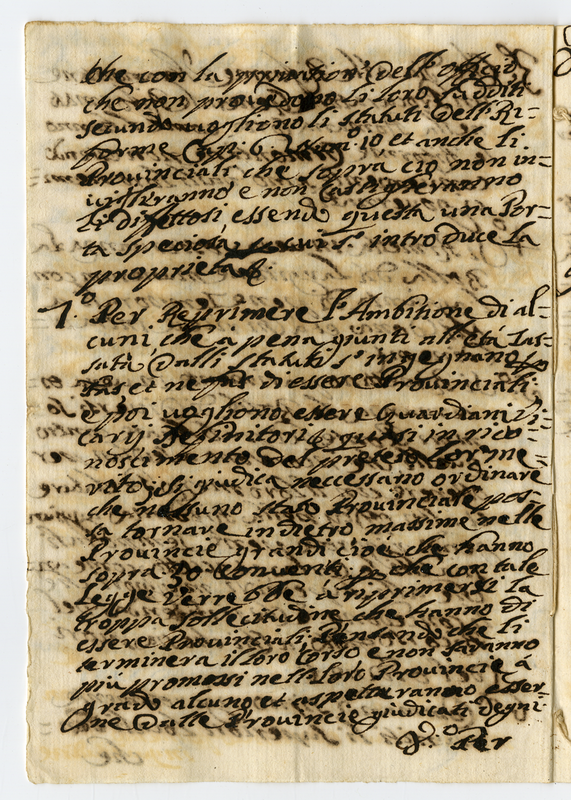 che con la privatione dell'officio
che non provedono li loro sudditi
secundo vogliono li statuti dell Ri=
forme Cap: 6. non: 10 et anche li
Provinciali che sopra cio non in=
visiliranno e non castigheranno
li difettosi essendo questa una Por=
ta speciosa s'introduce la
proprietà
7.º Per Reprimere l'Ambitione di al=
cuni che à pena giunti all'età tas=
sata dalli statuti s'ingegnano
fas et nefas di essere Provinciali
e poi vogliono essere Guardiani Vi=
carij Definitori quasi in rico=
noscimento del preteso lor me=
rito, si giudica neccessario ordinare
che nessuno stato Provinciale pos=
sa tornare indietro massime nelle
Provincie grandi cioè che hanno
sopra 30 Conventi che con tale
Legge verrebbe à reprimersi la
troppa sollecitudine che hanno di
essere Provinciali Pensando che li
terminerà il loro corso e non saranno
più promossi nelle loro Provincie à
grado alcuno et aspetteranno esser=
ne dalle Provincie giudicati degni
8.º Per